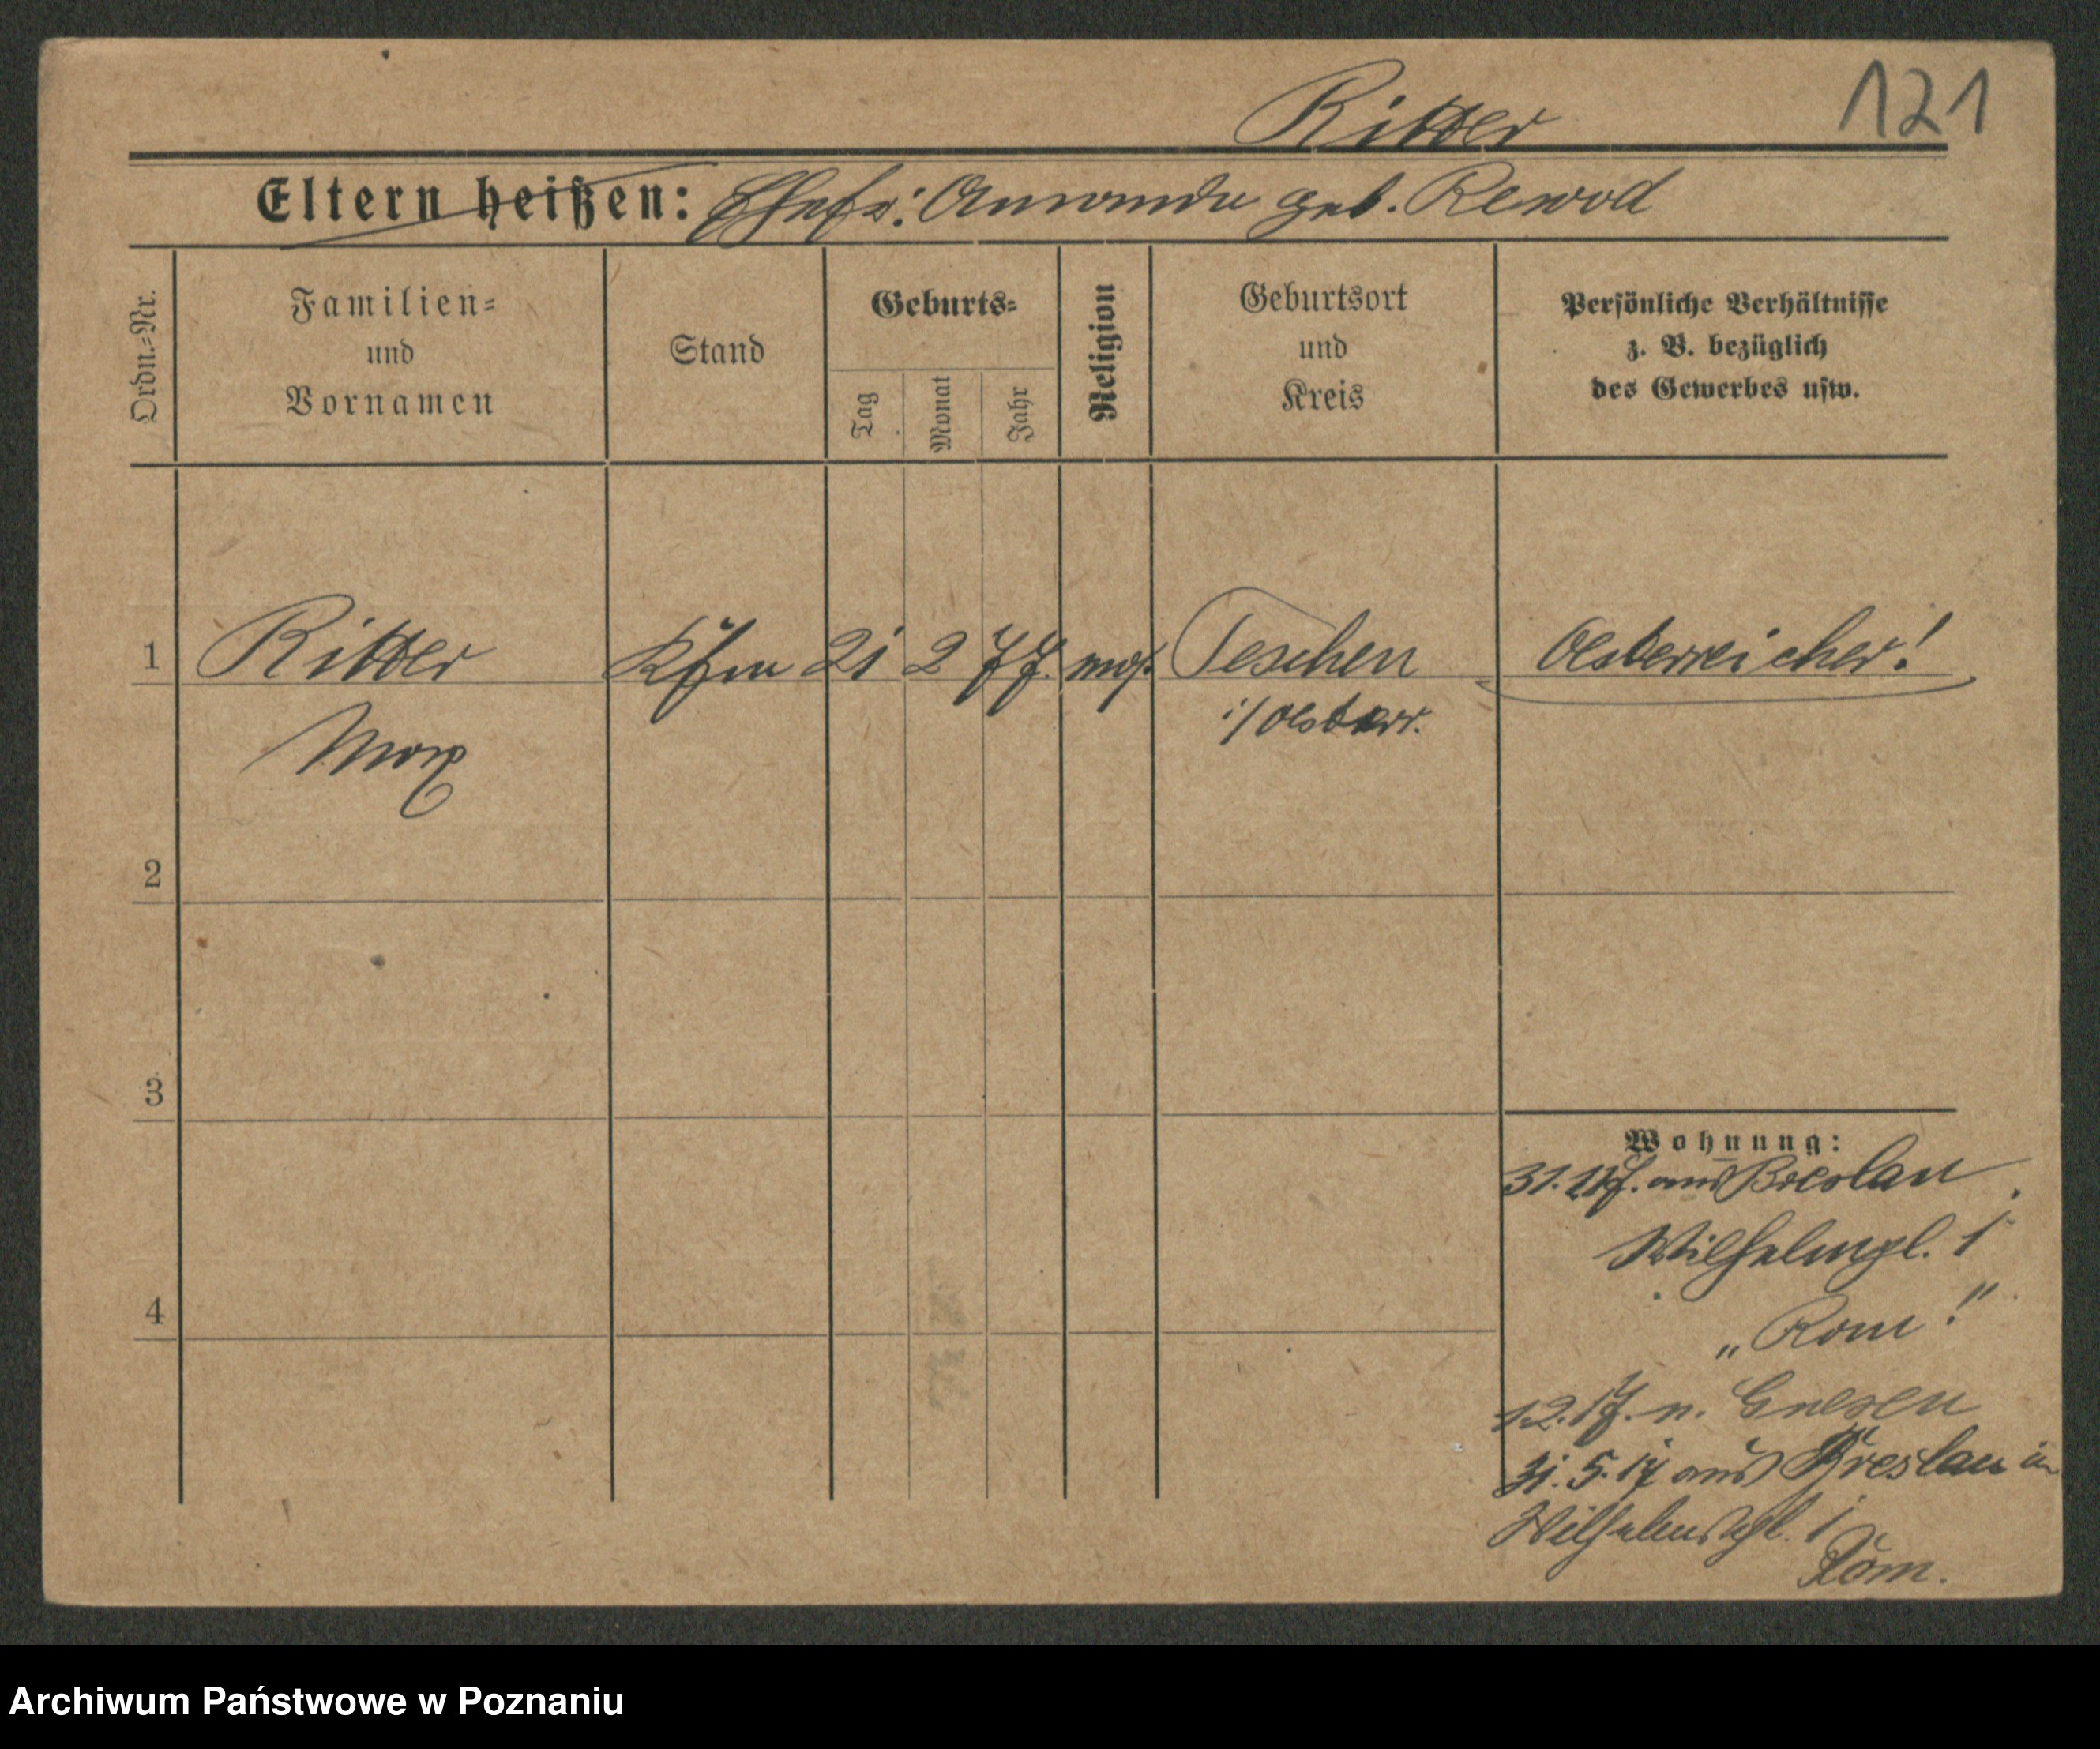 Ritter 121
Eltern heißen: Ehefr: Amanda geb. Rewod
Ordn.-Nr.
Familien-
und
Vornamen
Stand
Geburts-
Tag
Monat
Jahr
Religion
Geburtsort
und
Kreis
Persönliche Verhältnisse
z. B. bezüglich
des Gewerbes usw.
1 Ritter Kfm 21 2 77. mos. Teschen Oesterreicher!
Max i/Oesterr.
2
3
4
Wohnung:
31. aus Breslau
Wilhelmpl. 1
„Rom!"
12.17. n. Gnesen
31. 5. 17 aus Breslau in
Wilhelmspl. 1
Rom.
Archiwum Państwowe w Poznaniu